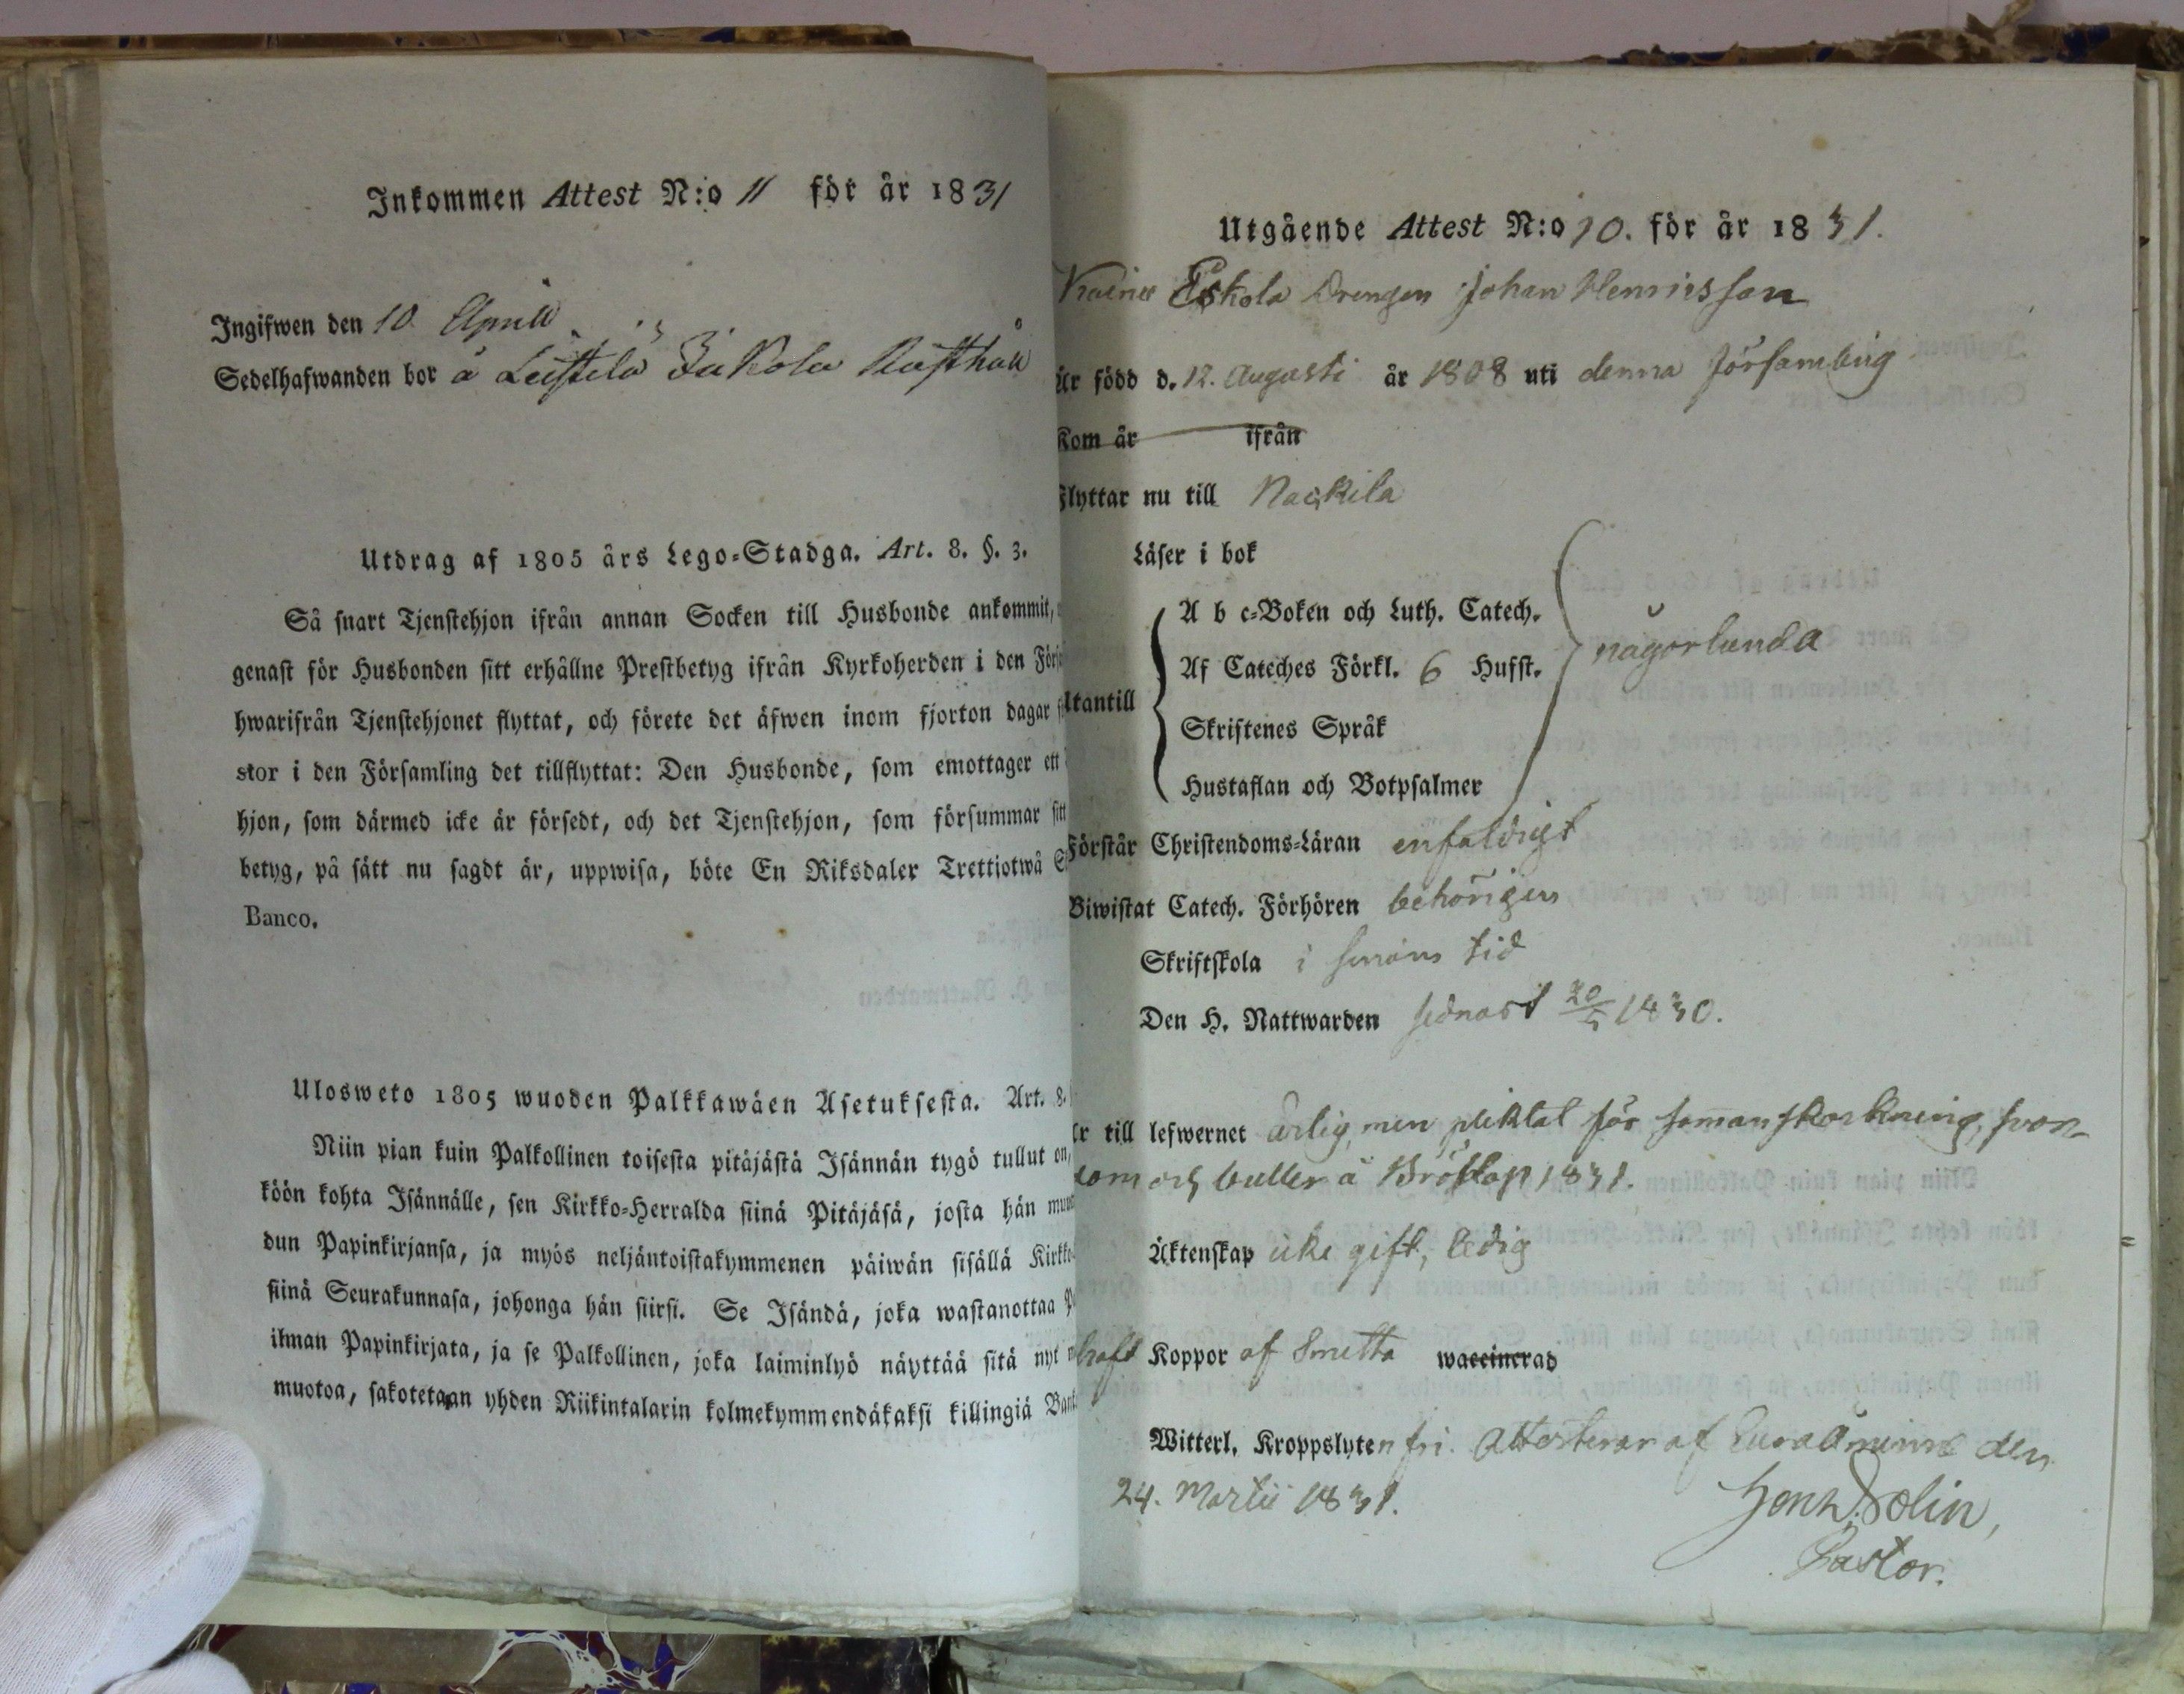 Inkommen Attest N:o 11 för år 1831
Ingifwen den 10 April
Sedelhafwanden bor å Leistilä Jakola Rusthåll
Utdrag af 1805 års Lego-Stadga. Art. 8. §. 3.
Så snart Tjenstehjon ifrån annan Socken till Husbonde ankommit,
genast för Husbonden sitt erhållne Prestbetyg ifrån Kyrkoherden i den
hwarifrån Tjenstehjonet flyttat, och förete det äfwen inom fjorton dagar
stor i den Församling det tillflyttat: Den Husbonde, som emottager ett
hjon, som därmed icke är försedt, och det Tjenstehjon, som försummar sitt
betyg, på sätt nu sagdt är, uppwisa, böte En Riksdaler Trettiotwå
Banco.
Ulosweto 1805 wuoden Palkkawäen Asetuksesta. Art. 8.
Niin pian kuin Palkollinen toisesta pitäjästä Isännän tygö tullut on,
köön kohta Isännälle, sen Kirkko-Herralda siinä Pitäjäsä, josta hän
dun Papinkirjansa, ja myös neljäntoistakymmenen päiwän sisällä
siinä Seurakunnasa, johonga hän siirsi. Se Isändä, joka wastanottaa
ilman Papinkirjata, ja se Palkollinen, joka laiminlyö näyttää sitä nyt
muotoa, sakotetaan yhden Riikintalarin kolmekymmendäkaksi killingiä
Utgående Attest N:o 10. för år 1831.
Eskola Drengen Johan Henricsson
Är född d. 12. Augusti år 1808 uti denna församling
Kom år ifrån
Flyttar nu till Nackila
Läser i bok
A b c-Boken och Luth. Catech.
Af Cateches Förkl. 6 Hufst. någorlunda
Utantill
Skriftenes Språk
Hustaflan och Botpsalmer
Förstår Christendoms-Läran enfaldigt
Biwistat Catech. Förhören behörigen
Skriftskola i sinom tid
Den H. Nattwarden sednast 20/5 1830.
Är till lefwernet ärlig, men pliktat för
dom och buller å Bröllop 1831.
Äktenskap icke gift, ledig
haft Koppor af Smitta waccinerad
Witterl. Kroppslyten fri. Attesterar af Euraåminne den
24. Martii 1831.
Henr. Dolin,
Pastor.